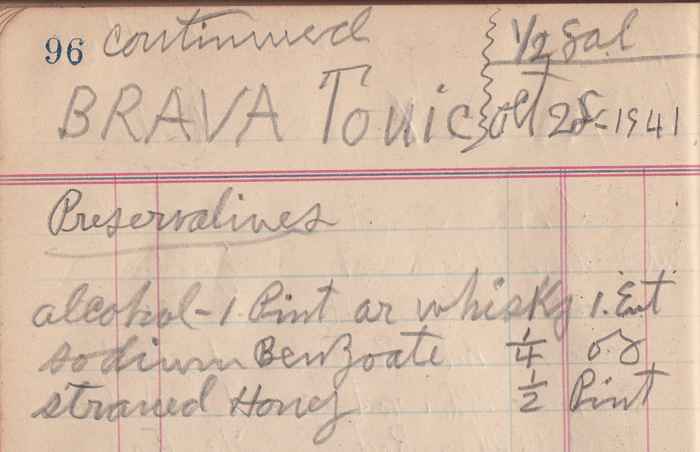 96 continued 1/2 Gal
BRAVA Tonic Oct 28-1941
Preservatives
alcohol-1 Pint or whisky 1.
sodium Benzoate 1/4 oz
strained Honey 1/2 Pint